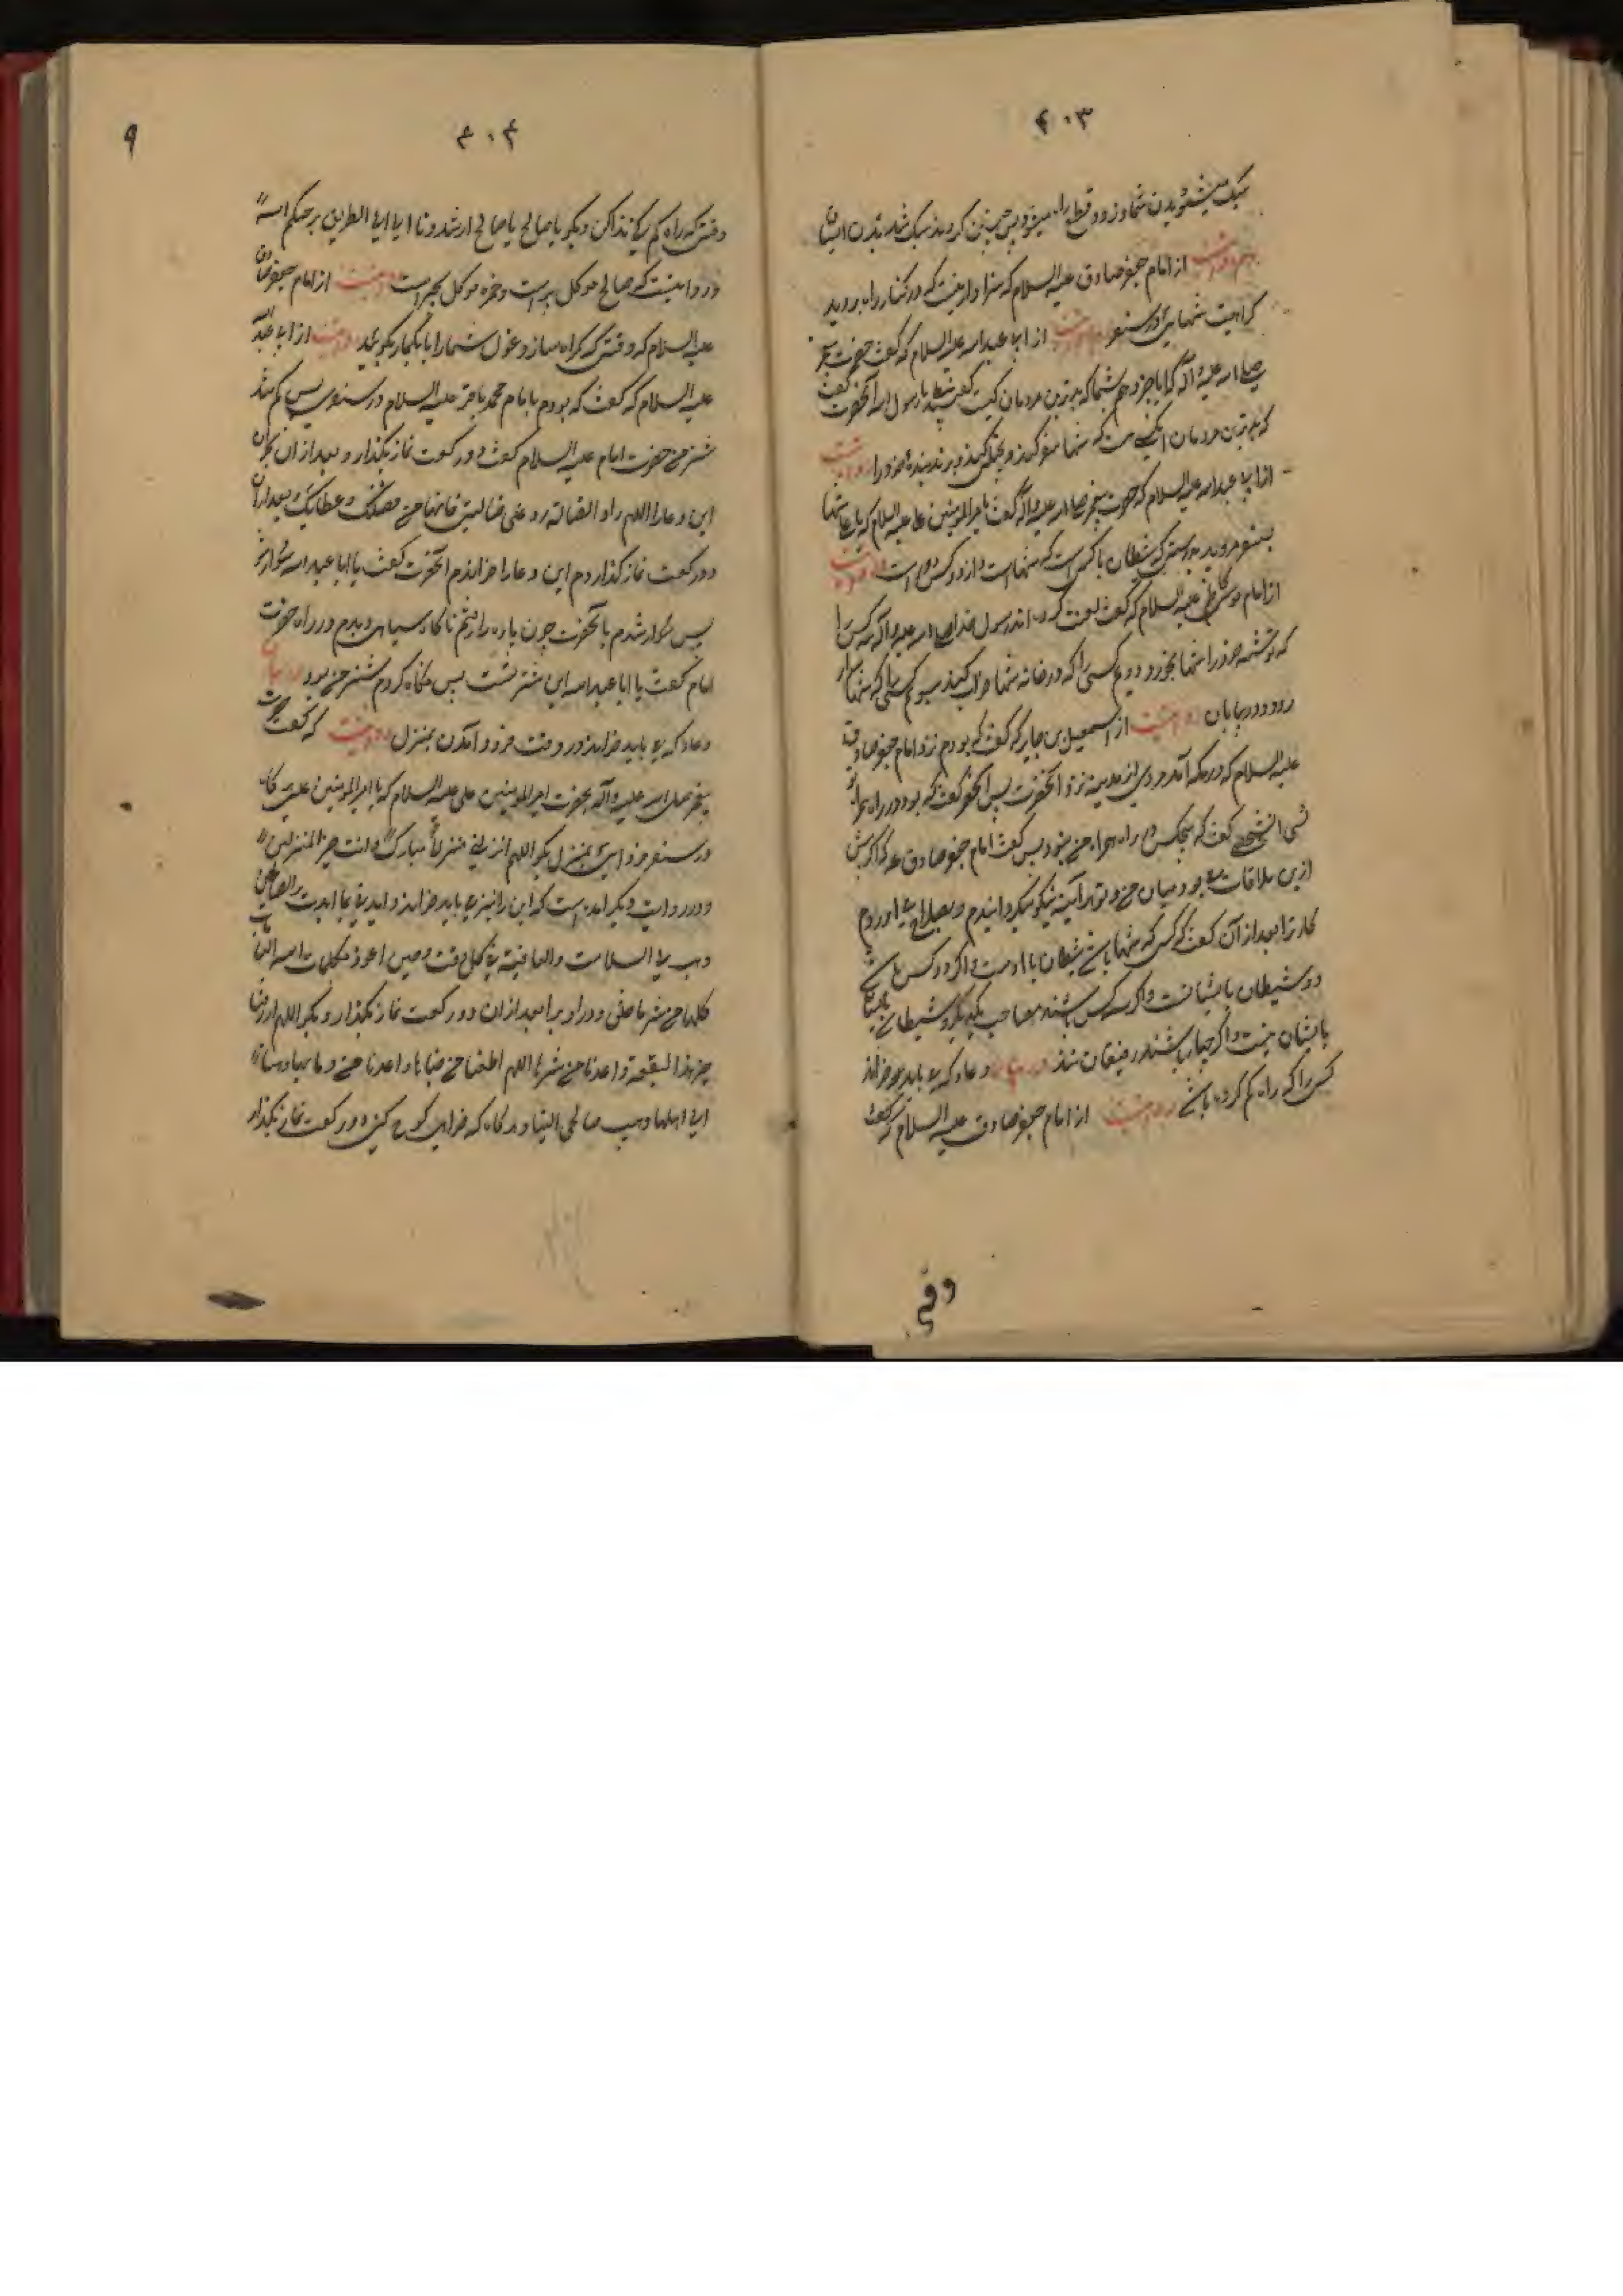 ۴۰۳
سبک میشود بدن شما و زود قطع راه میشود پس چنین کردند سبک شد بدن ایشان
از امام جعفر صادق علیه السلام که سزاوار نیست که در کنار راه بروید
کراهیت تنهایی در سفر از ابا عبد الله علیه السلام که گفت حضرت پیغمبر
صلی الله علیه و آله که ایا خبر دهم شما که بدترین مردمان کیست گفتند بلی یا رسول الله آنحضرت گفت
که بدترین مردمان آنکس است که تنها سفر کند و بزند بنده خود را روایت
از ابا عبد الله علیه السلام که حضرت پیغمبر صلی الله علیه و آله گفت با امیر المومنین علی علیه السلام که یا علی تنها
بسفر مروید بدرستی که شیطان با کسی است که تنها است و از دو کس دور است روایت
از امام موسی کاظم علیه السلام که گفت لعنت کرده اند رسول خدا صلی الله علیه و آله سه کس را
که توشه خود را تنها بخورد دویم کسی را که در خانه تنها خواب کند سیوم کسی را که تنها
رود در بیابان روایت است از اسمعیل بن جابر که گفت که بودم نزد امام جعفر صادق
علیه السلام که در مکه آمد مردی از مدینه نزد آنحضرت پس آنحضرت گفت که بود در راه همراه تو
آن شخص گفت که هیچکس در راه همراه من نبود پس گفت امام جعفر صادق ع که اگر پیش
ازین ملاقات بود میان من و تو هر آینه نیکو میگردانیدم
کار ترا بعد از آن گفت که کسی که تنها باشد شیطان با اوست و اگر دو کس باشد
دو شیطان با ایشانست و اگر سه کس باشند مصاحب یکدیگرند و شیطان
با ایشان نیست و اگر چهار باشند رفیقان شدند در بیان دعاء که باید خواند
کسی را که راه گم کرده باشد روایت است از امام جعفر صادق علیه السلام که گفت
وقتی
۴۰۴
۹
وقتی که راه گم کنی ندا کن و بگو یا صالح یا صالح ارشدونا الی الطریق یرحمکم الله
و روایتست که صالح موکل بر است و حمزه موکل بحر است روایت از امام جعفر صادق
علیه السلام که وقتی که گمراه سازد غول شما را بانگ نماز بگویید روایت از ابا عبد الله
علیه السلام که گفت که بودم با امام محمد باقر علیه السلام در سفری پس گم شد
شتر من حضرت امام علیه السلام گفت دو رکعت نماز بگذار و بعد از آن بخوان
این دعا را اللهم راد الضالة رد علی ضالتی فانها من فضلک و عطائک و بعد از آن
دو رکعت نماز گذاردم این دعا را خواندم آنحضرت گفت یا ابا عبد الله سوار شو
پس سوار شدم با آنحضرت چون پاره راه رفتم ناگاه سیاهی دیدم در راه حضرت
امام گفت یا ابا عبد الله این شتر تست پس نگاه کردم شتر من بود در بیان
دعاء که باید خواند در وقت فرود آمدن بمنزل روایت که گفت حضرت
پیغمبر صلی الله علیه و آله بحضرت امیر المومنین علی علیه السلام که یا امیر المومنین علی هر گاه
در سفر فرود آیی بمنزل بگو اللهم انزلنی منزلاً مبارکاً و انت خیر المنزلین
و در روایت دیگر آمده است که این را نیز باید خواند و ایدنی بما ایدت به الصالحین
وهب لی السلامت والعافیة فی کل وقت و حین اعوذ بکلمات الله التامات
کلها من شر ما خلق و ذرا و برا بعد از آن دو رکعت نماز بگذار و بگو اللهم ارزقنا
خیر هذا البقعة و اعذنا من شرها اللهم اطعمنا من جناها و اعذنا من وباها وحببنا
الی اهلها وحبب صالحی الینا و هر گاه که خواهی کوچ کنی دو رکعت نماز بگذار